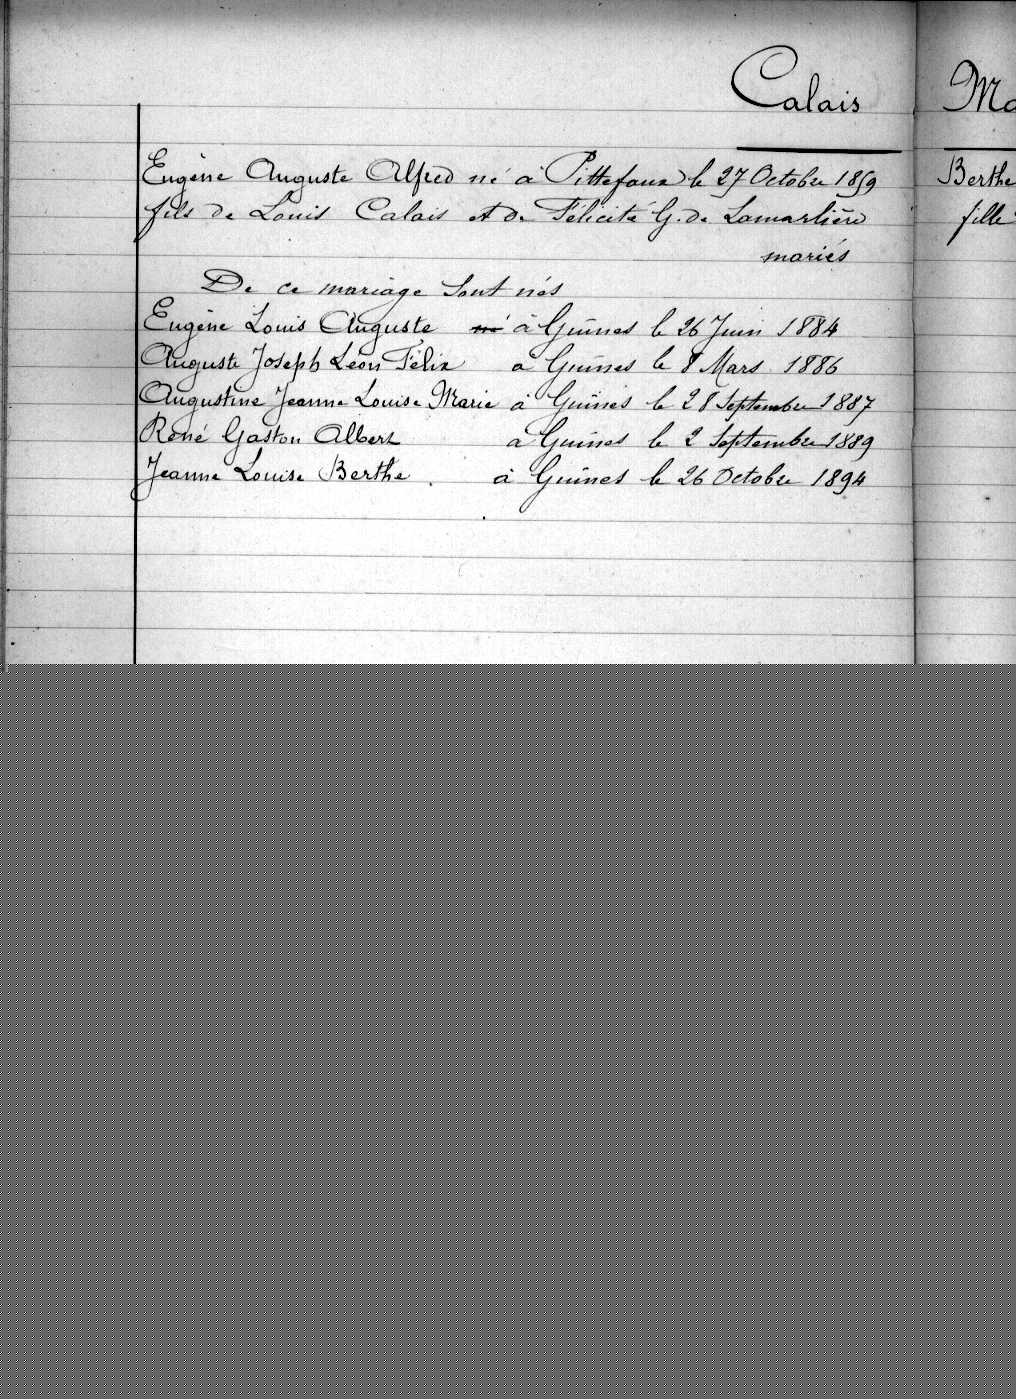 Calais
Eugène Auguste Alfred né à Pittefaux le 27 Octobre 1859
fils de Louis Calais et de Félicité G. de Lamarlière
mariés
De ce mariage sont nés
Eugène Louis Auguste né à Guînes le 26 Juin 1884
Auguste Joseph Léon Félix à Guînes le 8 Mars 1886
Augustine Jeanne Louise Marie à Guînes le 28 Septembre 1887
René Gaston Albert à Guînes le 2 Septembre 1889
Jeanne Louise Berthe à Guînes le 26 Octobre 1894
Ma
Berthe
fille